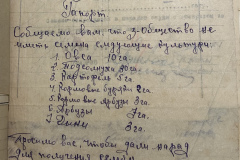 Рапорт
Сообщаем вам, что з-Общество не
имеет семена следующие культури:
1. Овса 10 га
2. Подсолнуха 20 га.
3. Картофель 5 га
4. Кормовые буряки 2 га
5. Кормовые арбузы 3 га
6. Арбузы 7 га
7. Дыни 3 га.
Просимо вас, чтобы дали наряд
для получения семян